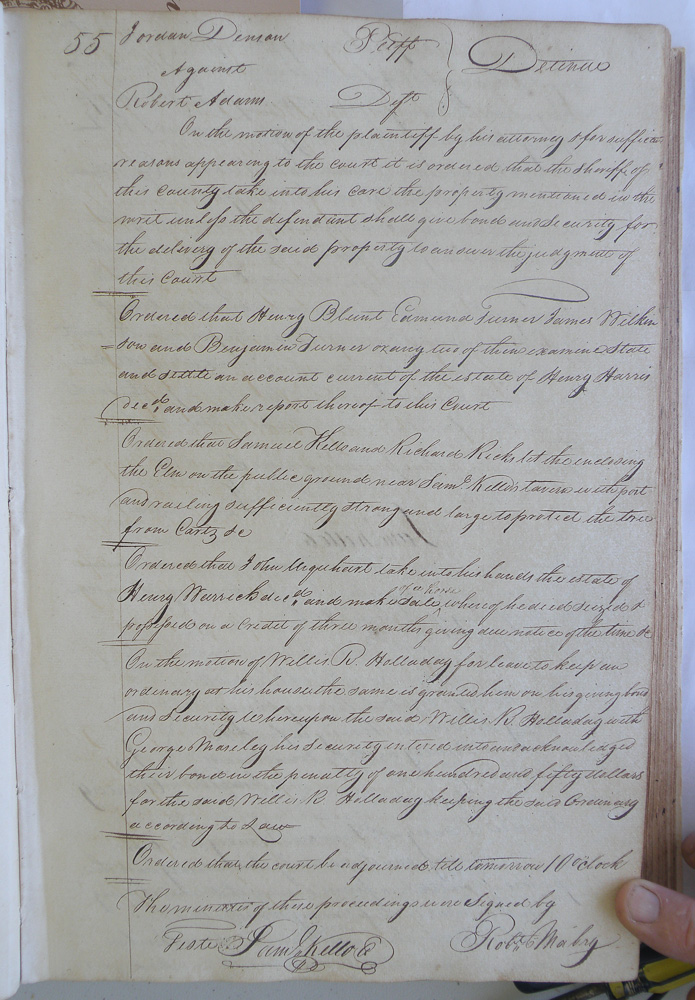 55
Jordan Denson Plff
Against Detinue
Robert Adams Deft
On the motion of the plaintiff by his attorney & for sufficient
reasons appearing to the court it is ordered that the sheriff of
this county take into his care the property mentioned in the
writ unless the defendant shall give bond and security for
the delivery of the said property to answer the judgment of
this Court
Ordered that Henry Blunt Edmund Turner James Wilkin
son and Benjamin Turner or any two of them examine State
and settle an account current of the estate of Henry Harris
decd. and make report thereof to this Court
Ordered that Samuel Kello and Richard Ricks let the enclosing
the Elm on the public ground near Saml. Kello's tavern with post
and railing sufficiently strong and large to protect the tree
from Carts &c
Ordered that John Urquhart take into his hands the estate of
Henry Warrick decd. and make sale of a horse whereof he died seized &
possessed on a credit of three months giving due notice of the time &c
On the motion of Willis R. Holladay for leave to keep an
ordinary at his house the same is granted him on his giving bond
and security Whereupon the said Willis R. Holladay with
George Moseley his security entered into and acknowledged
their bond in the penalty of one hundred and fifty dollars
for the said Willis R Holladay keeping the said Ordinary
according to Law
Ordered that the court be adjourned till tomorrow 10 oclock
The minutes of these proceedings were signed by
Teste Saml Kello C Robt Mabry